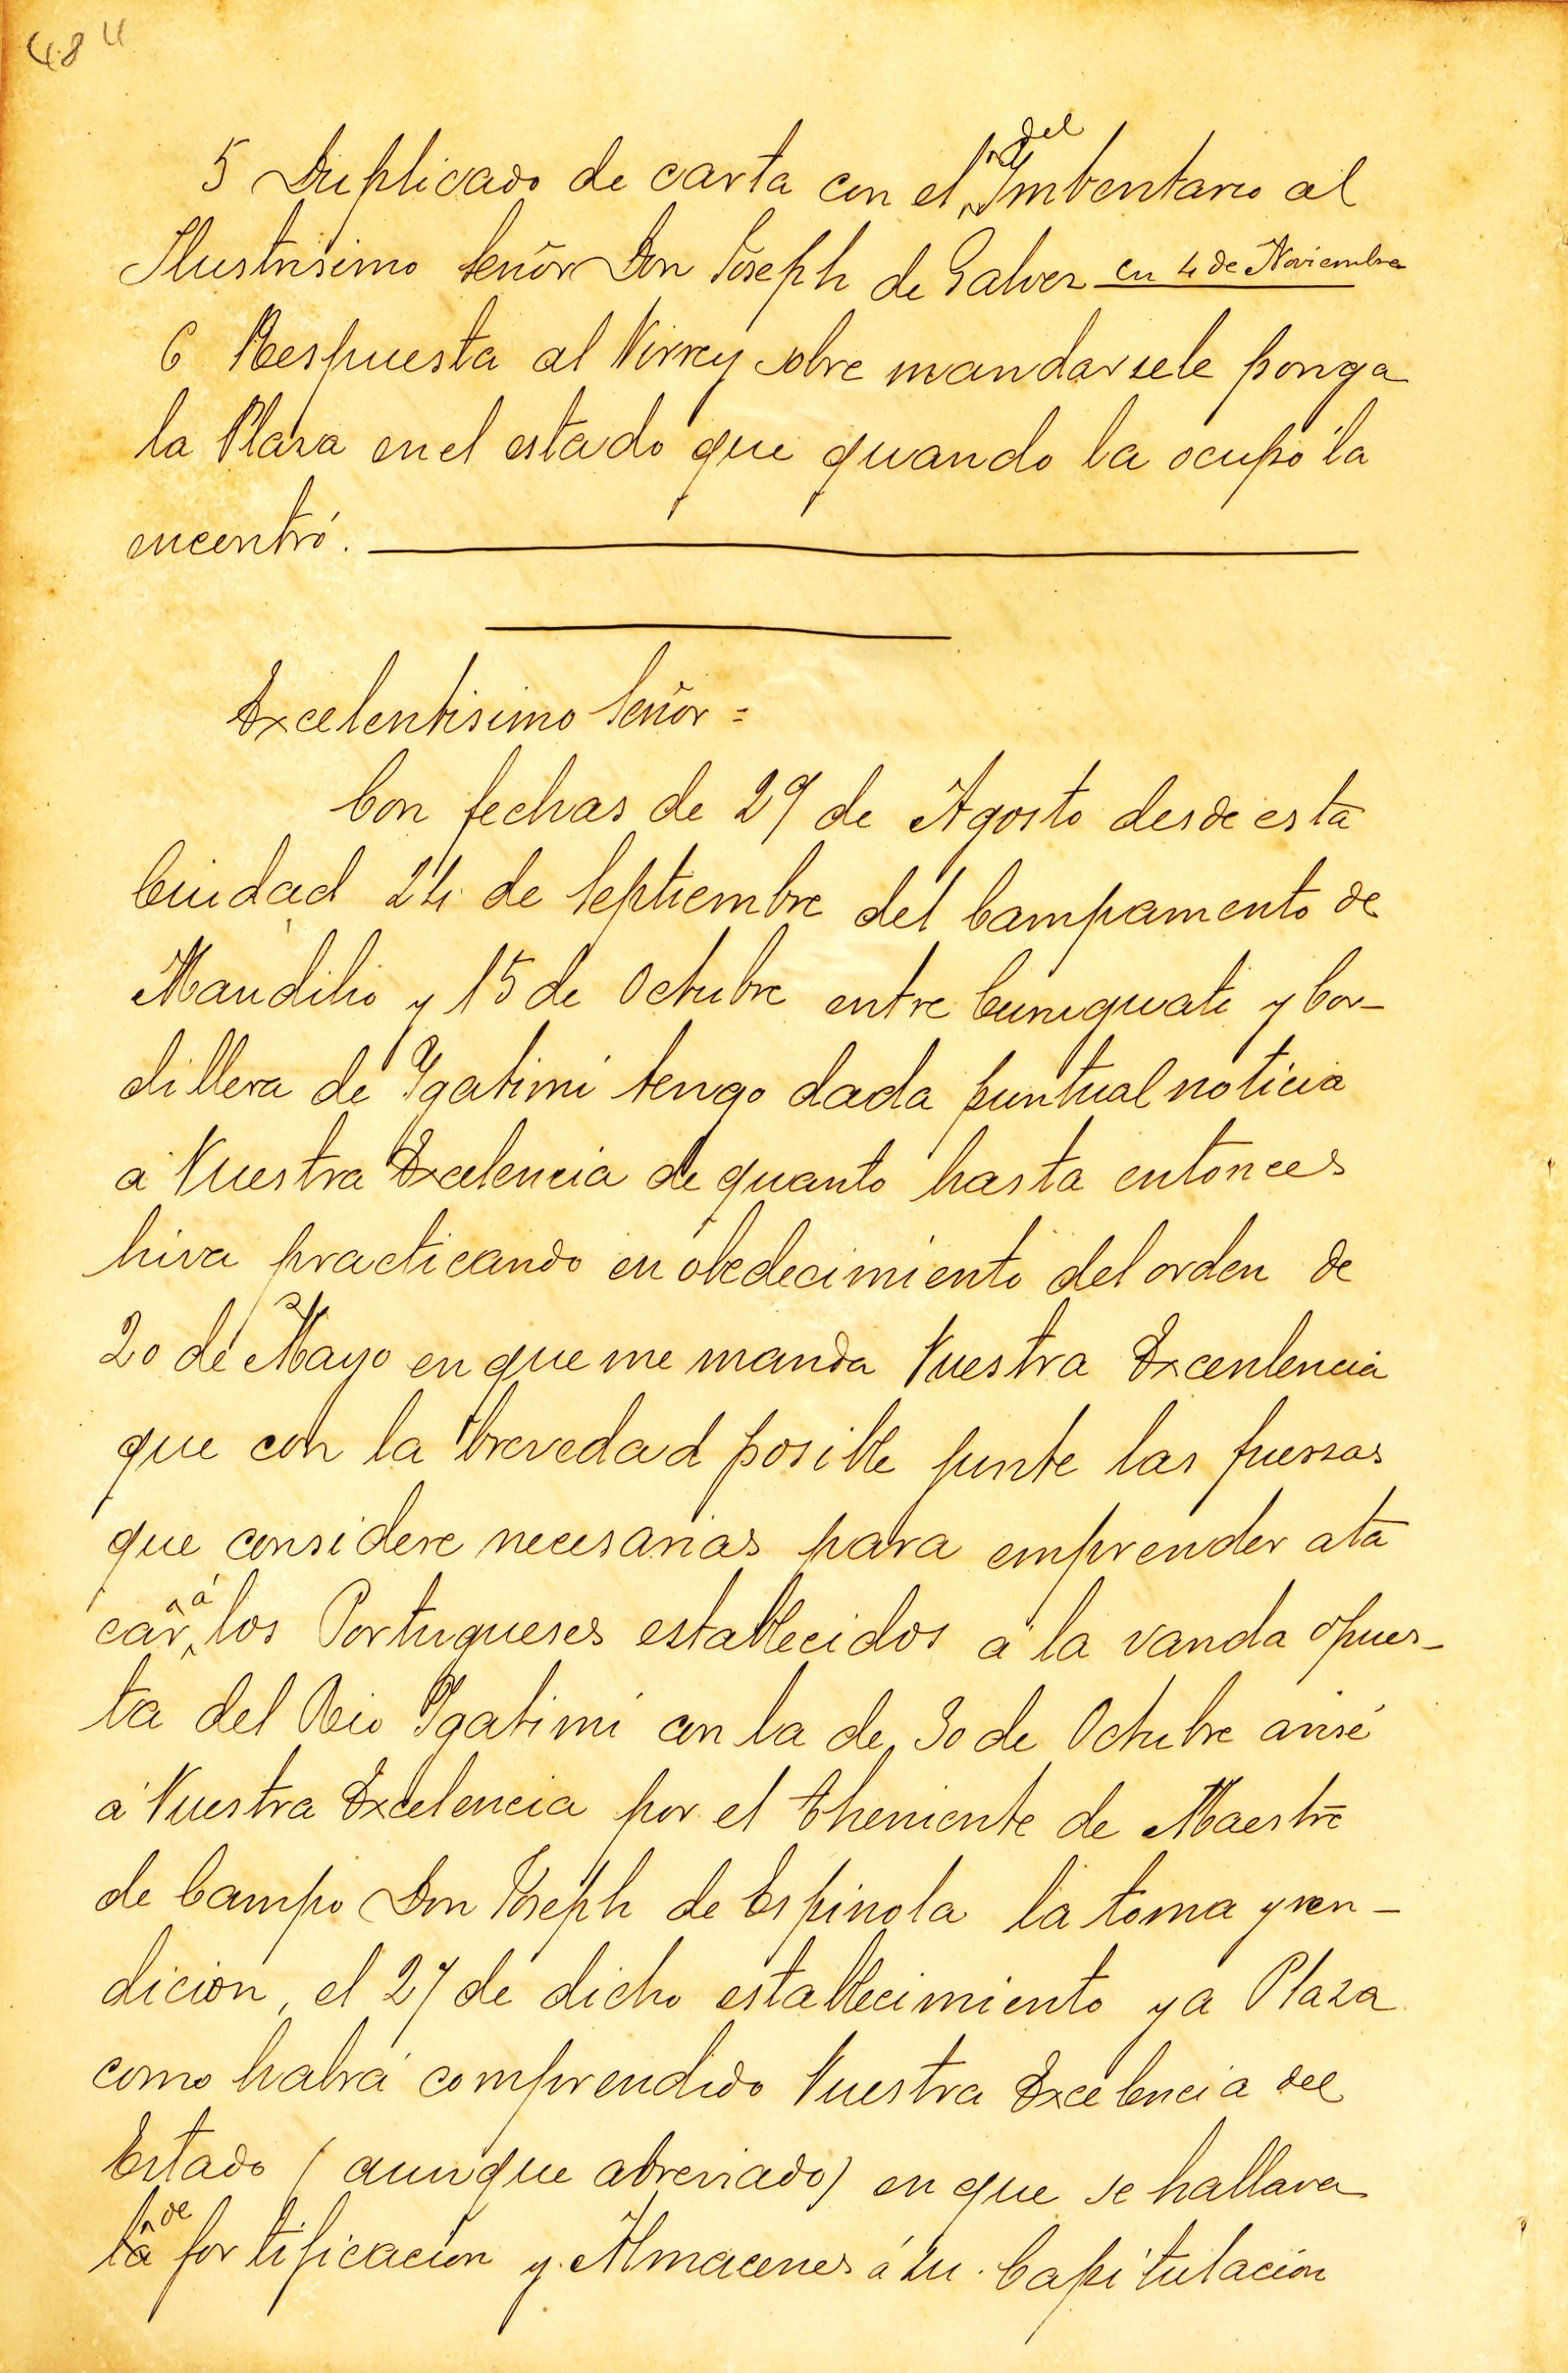 484
5 Duplicado de carta con el del Imbentario al
Ilustrisimo Señor Don Joseph de Galvez en 4 de Noviembre
6 Respuesta al Virrey sobre mandarsele ponga
la Plaza en el estado que quando la ocupó la
encontró.
Excelentisimo Señor =
Con fechas de 29 de Agosto desde esta
Ciudad 24 de Septiembre del Campamento de
Mandiho y 15 de Octubre entre Curuguati y Cor-
dillera de Ygatimi tengo dada puntual noticia
a Vuestra Excelencia de quanto hasta entonces
hiva practicando en obedecimiento del orden de
20 de Mayo en que me manda Vuestra Excenlencia
que con la brevedad posible junte las fuerzas
que considere necesarias para emprender ata
car á los Portugueses establecidos a la vanda opues-
ta del Rio Ygatimi con la de 30 de Octubre avisé
á Vuestra Excelencia por el Theniente de Maestre
de Campo Don Joseph de Espinola la toma y ren-
dicion, el 27 de dicho establecimiento ya Plaza
como habrá comprendido Vuestra Excelencia del
Estado (aunque abreviado) en que se hallava
la de fortificacion y Almacenes á su Capitulacion